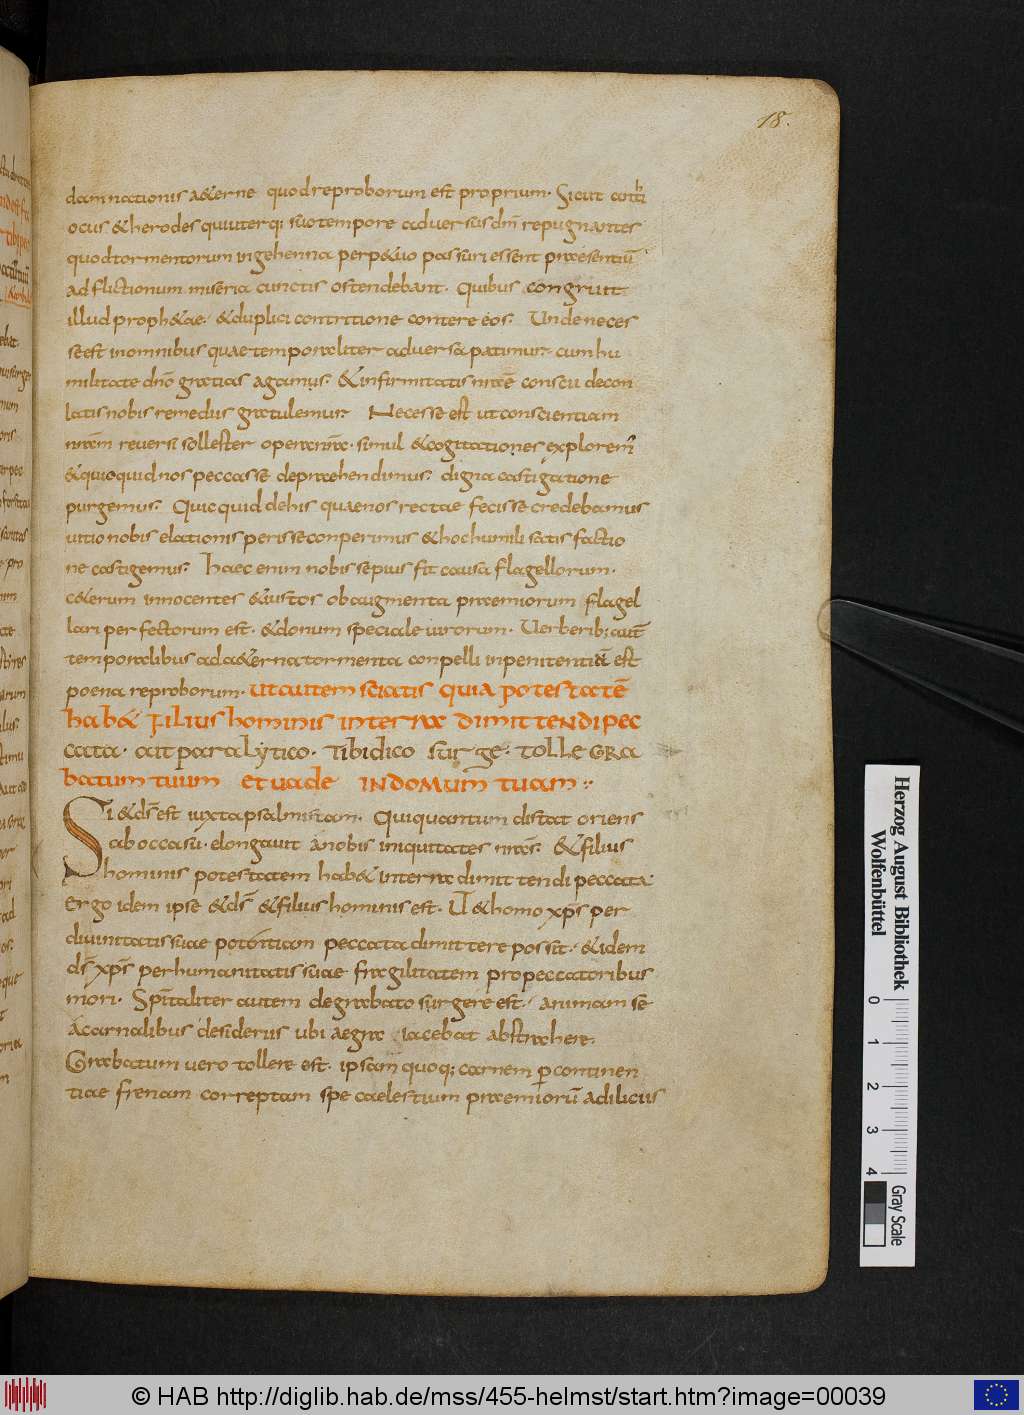 18.
damnationis aeterne quod reproborum est proprium. Sicut anti
ocus & herodes quiuterq; suo tempore aduersus dnm̅ repugnantes
quod tormentorum in gehenna perp&uo passuri essent praesentiu̅
adflictionum miseria cunctis ostendebant. Quibus congruit
illud proph&ae. & duplici contritione contere eos. Unde neces
se est in omnibus quae temporaliter aduersa patimur. cum hu
militate dno̅ gratias agamus. & infirmitatis nr̅ae conscii de con
latis nobis remediis gratulemur. Necesse est ut conscientiam
nr̅am reuersi sollester opera nr̅a. simul & cogitationes explorem'
& quicquid nos peccasse depraehendimus. digna castigatione
purgemus. Quicquid de his quae nos rectae fecisse credebamus
uitio nobis elationis perisse conperimus & hoc humili satisfactio
ne castigemus. Haec enim nobis sepius fit causa flagellorum.
c&erum innocentes & iustos ob augmenta praemiorum flagel
lari perfectorum est. & donum speciale uirorum. Uerberib; aut̅
temporalibus ad a&erna tormenta conpelli inpenitentia̅ est
poena reproborum. Ut autem sciatis quia potestate̅
hab& filius hominis in terra dimittendi pec
cata. ait paralytico. Tibi dico surge. tolle gra
batum tuum et uade in domum tuam
Si & ds̅ est iuxta psalmistam. Qui quantum distat oriens
ab occasu. elongauit a nobis iniquitates nr̅as. & filius
hominis potestatem hab& in terra dimittendi peccata
Ergo idem ipse & ds̅ & filius hominis est. Ut & homo xp̅s per
diuinitatis suae potentiam peccata dimittere possit. & idem
ds̅ xp̅s per humanitatis suae fragilitatem pro peccatoribus
mori. Spi̅taliter autem de grabato surgere est. animam se̅
a carnalibus desideriis ubi aegra iacebat abstrahere.
Grabatum uero tollere est. ipsam quoq; carnem p̱ continen
tiae frenam correptam spe caelestium praemioru̅ a diliciis
Herzog August Bibliothek
Wolfenbüttel
0 1 2 3 4
Gray Scale
© HAB http://diglib.hab.de/mss/455-helmst/start.htm?image=00039